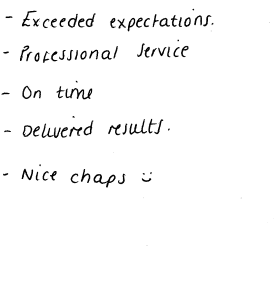 - Exceeded expectations.
- Professional service
- On time
- Delivered results.
- Nice chaps :)